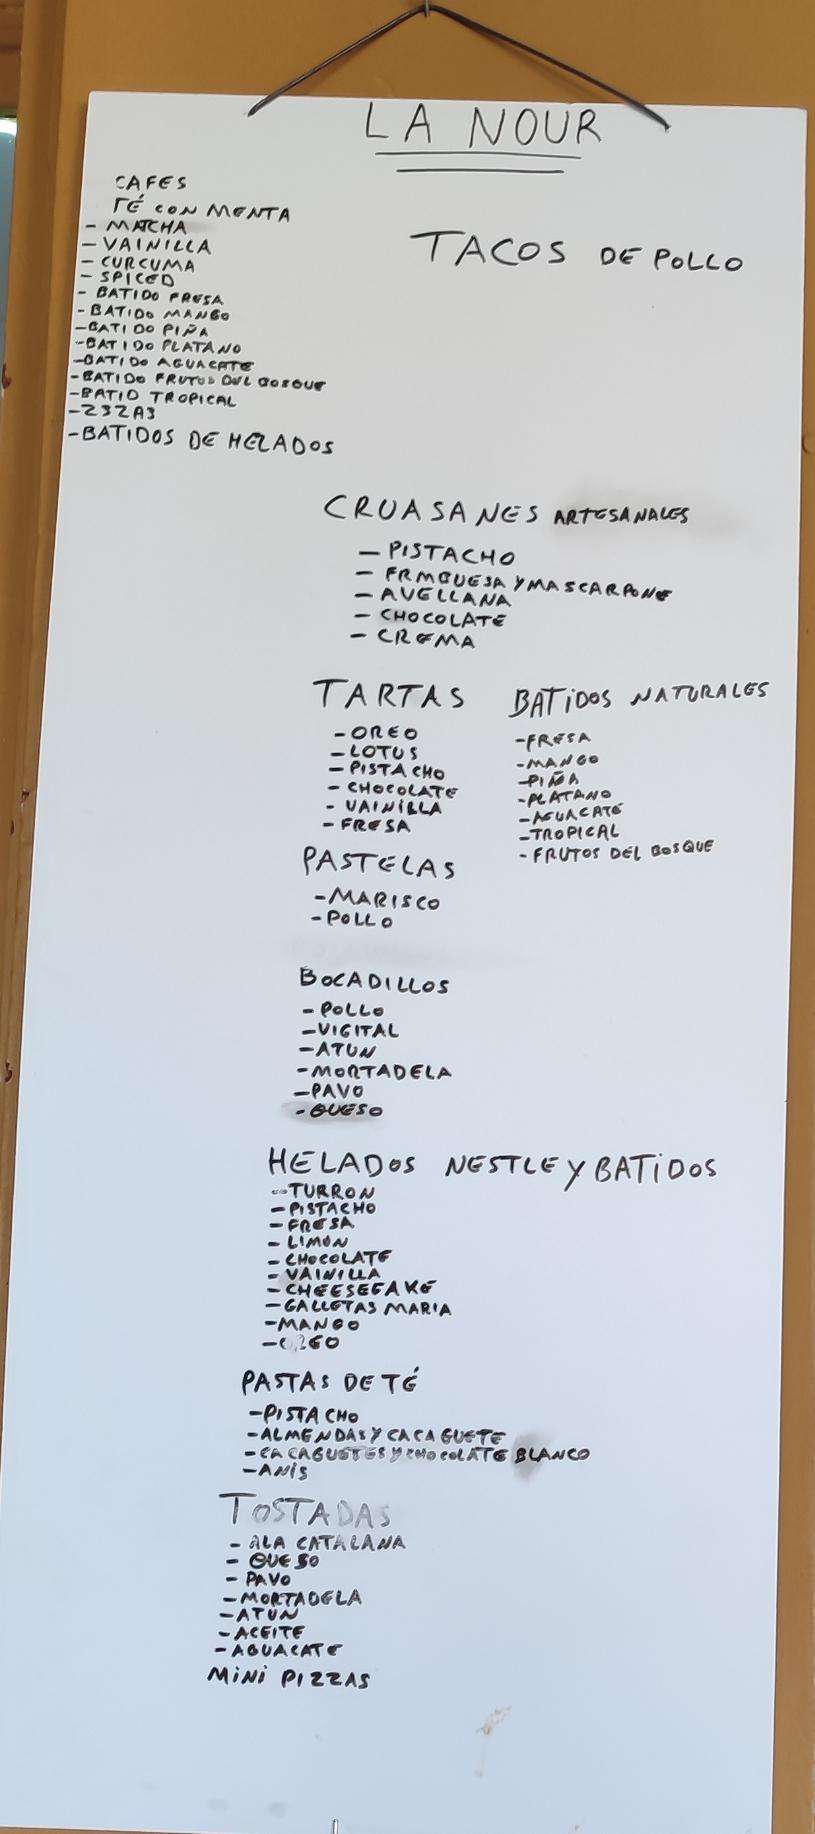 LA NOUR
CAFES
TÉ CON MENTA
- MATCHA
- VAINILLA
- CURCUMA
- SPICED
- BATIDO FRESA
- BATIDO MANGO
- BATIDO PIÑA
- BATIDO PLATANO
- BATIDO AGUACATE
- BATIDO FRUTOS DEL BOSQUE
- BATIO TROPICAL
- ZSZA3
- BATIDOS DE HELADOS
TACOS DE POLLO
CRUASANES ARTESANALES
- PISTACHO
- FRMBUESA Y MASCARPONE
- AVELLANA
- CHOCOLATE
- CREMA
TARTAS
- OREO
- LOTUS
- PISTACHO
- CHOCOLATE
- VAINILLA
- FRESA
BATIDOS NATURALES
- FRESA
- MANGO
- PIÑA
- PLATANO
- AGUACATE
- TROPICAL
- FRUTOS DEL BOSQUE
PASTELAS
- MARISCO
- POLLO
BOCADILLOS
- POLLO
- VIGITAL
- ATUN
- MORTADELA
- PAVO
- QUESO
HELADOS NESTLE Y BATIDOS
- TURRON
- PISTACHO
- FRESA
- LIMON
- CHOCOLATE
- VAINILLA
- CHEESECAKE
- GALLETAS MARIA
- MANGO
PASTAS DE TÉ
- PISTACHO
- ALMENDAS Y CACAGUETE
- CACAGUETES Y CHOCOLATE BLANCO
- ANIS
TOSTADAS
- ALA CATALANA
- QUESO
- PAVO
- MORTADELA
- ATUN
- ACEITE
- AGUACATE
MINI PIZZAS